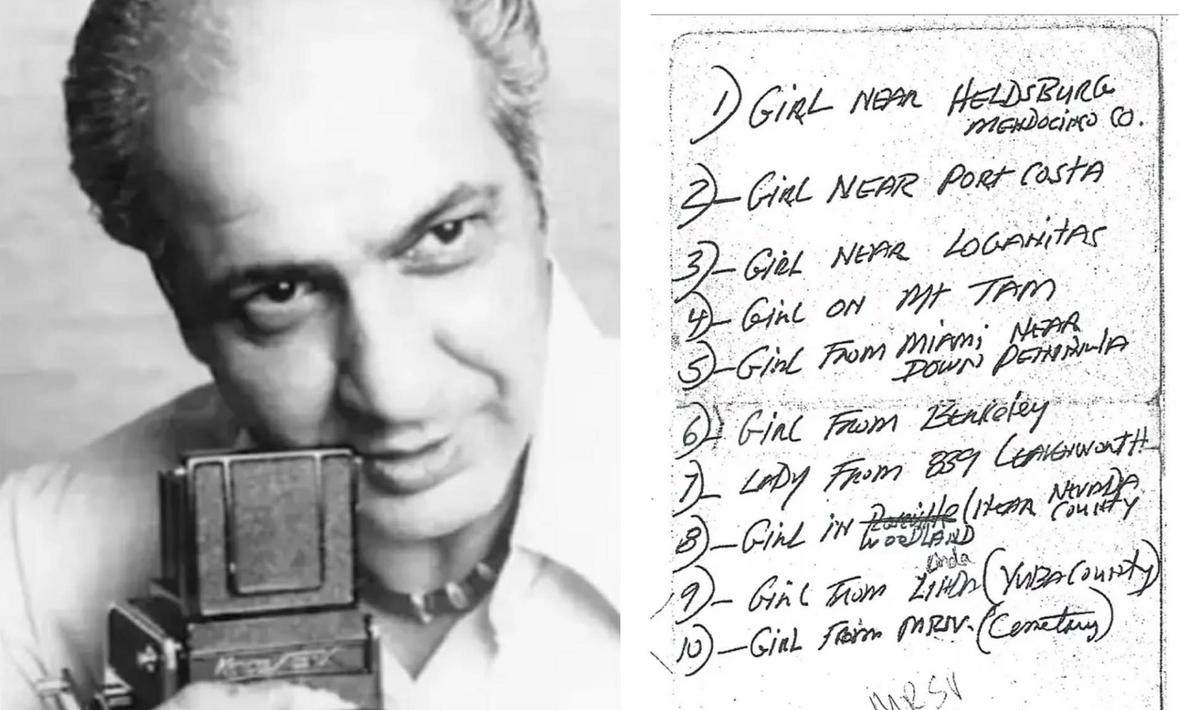 1) GIRL NEAR HELDSBURG
MENDOCINO CO.
2)-GIRL NEAR PORT COSTA
3)-GIRL NEAR LOGANITAS
4)-GIRL ON Mt TAM
5)-GIRL FROM MIAMI NEAR
DOWN PENINULA
6)- GIRL FROM Berkeley
7)- LADY FROM 839 LEAVENWORTH
8)-GIRL IN (NEAR NEVADA
COUNTY
WOODLAND
9)- GIRL FROM LINDA (YUBA COUNTY)
10)-GIRL FROM MRSV. (Cemetary)
MRSV